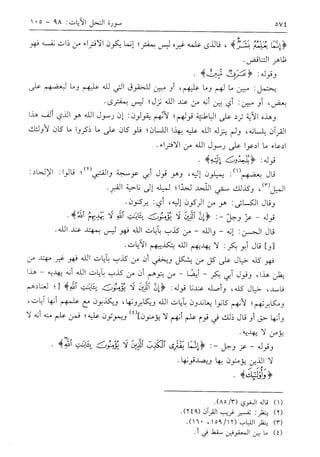 ٥٧٤ سورة النحل الآيات: ٩٨ - ١٠٥
﴿إِنَّمَا يُعَلِّمُهُ بَشَرٌ﴾، فالذي علمه غيره ليس بمفتر؛ إنما يكون الافتراء من ذات نفسه فهو
ظاهر التناقض.
وقوله: ﴿عَرَبِيٌّ مُّبِينٌ﴾.
يحتمل: مبين ما لهم وما عليهم، أو مبين للحقوق التي لله عليهم وما لبعضهم على
بعض، أو مبين: أي بين أنه من عند الله نزل؛ ليس بمفترى.
وهذه الآية ترد على الباطنية قولهم؛ لأنهم يقولون: إن رسول الله هو الذي ألف هذا
القرآن بلسانه، ولم ينزله الله عليه بهذا اللسان؛ فلو كان على ما ذكروا ما كان لأولئك
ادعاء ما ادعوا على رسول الله من الافتراء.
قوله: ﴿يُلْحِدُونَ إِلَيْهِ﴾.
قال بعضهم(١): يميلون إليه، وهو قول أبي عوسجة والقتبي(٢)؛ قالوا: الإلحاد:
الميل(٣)، وكذلك سمي اللَّحد لحدا؛ لميله إلى ناحية القبر.
وقال الكسائي: هو من الركون إليه، أي: يركنون.
وقوله - عز وجل -: ﴿إِنَّ الَّذِينَ لَا يُؤْمِنُونَ بِآيَاتِ اللَّهِ لَا يَهْدِيهِمُ اللَّهُ﴾.
قال الحسن: إنه - والله - من كذب بآيات الله فهو ليس بمهتد عند الله.
(و) قال أبو بكر: لا يهديهم الله بتكذيبهم الآيات.
فهو كله خيال على كل من يشكل ويخفى أن من كذب بآيات الله فهو غير مهتد من
يظن هذا، وقول أبي بكر - أيضًا - من يتوهم أن من كذب بآيات الله أنه يهديه - هذا
فاسد، خيال كله، وأصله عندنا قوله: ﴿إِنَّ الَّذِينَ لَا يُؤْمِنُونَ بِآيَاتِ اللَّهِ﴾ [؛ لعنادهم
ومكابرتهم؛ لأنهم كانوا يعاندون بآيات الله ويكابرونها، ويكذبون مع علمهم أنها آيات،
وأنها حق أو قال ذلك في قوم علم أنهم لا يؤمنون](٤) ويموتون عليه؛ فمن علم منه أنه لا
يؤمن لا يهديه.
وقوله - عز وجل -: ﴿إِنَّمَا يَفْتَرِي الْكَذِبَ الَّذِينَ لَا يُؤْمِنُونَ بِآيَاتِ اللَّهِ﴾.
لا الذين يؤمنون بها ويصدقونها.
﴿وَأُولَئِكَ﴾.
(١) قاله البغوي (٨٥/٣).
(٢) ينظر: تفسير غريب القرآن (٢٤٩).
(٣) ينظر اللباب (١٥٩/١٢، ١٦٠).
(٤) ما بين المعقوفين سقط في أ.